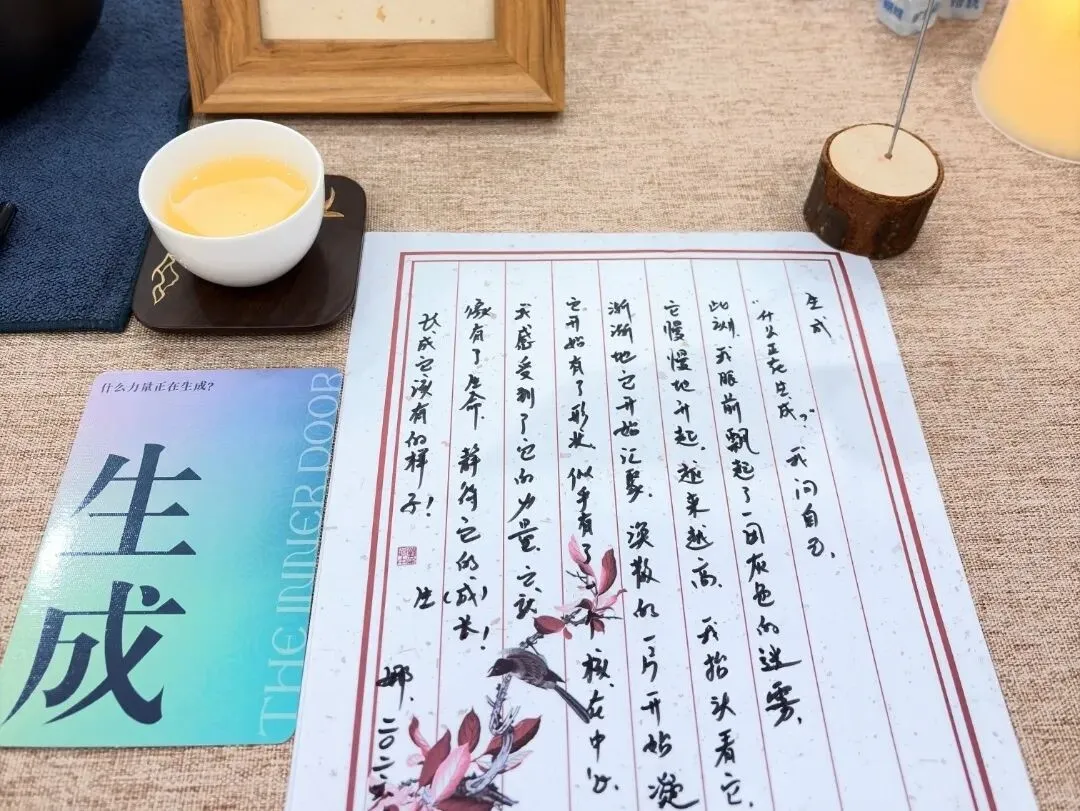 什么力量正在生成?
生成
THE INNER DOOR
生成
“什么正在生成?”我问自己,
此刻,我眼前飘起了一团灰色的迷雾,
它慢慢地升起,越来越高,我抬头看它,
渐渐地它开始汇聚,涣散的一片开始凝
它开始有了形状,似乎有了个核,在中心.
我感受到了它的力量,它就
像有了生命,静待它的(成)长!
长成它该有的样子!
娜.二〇二六